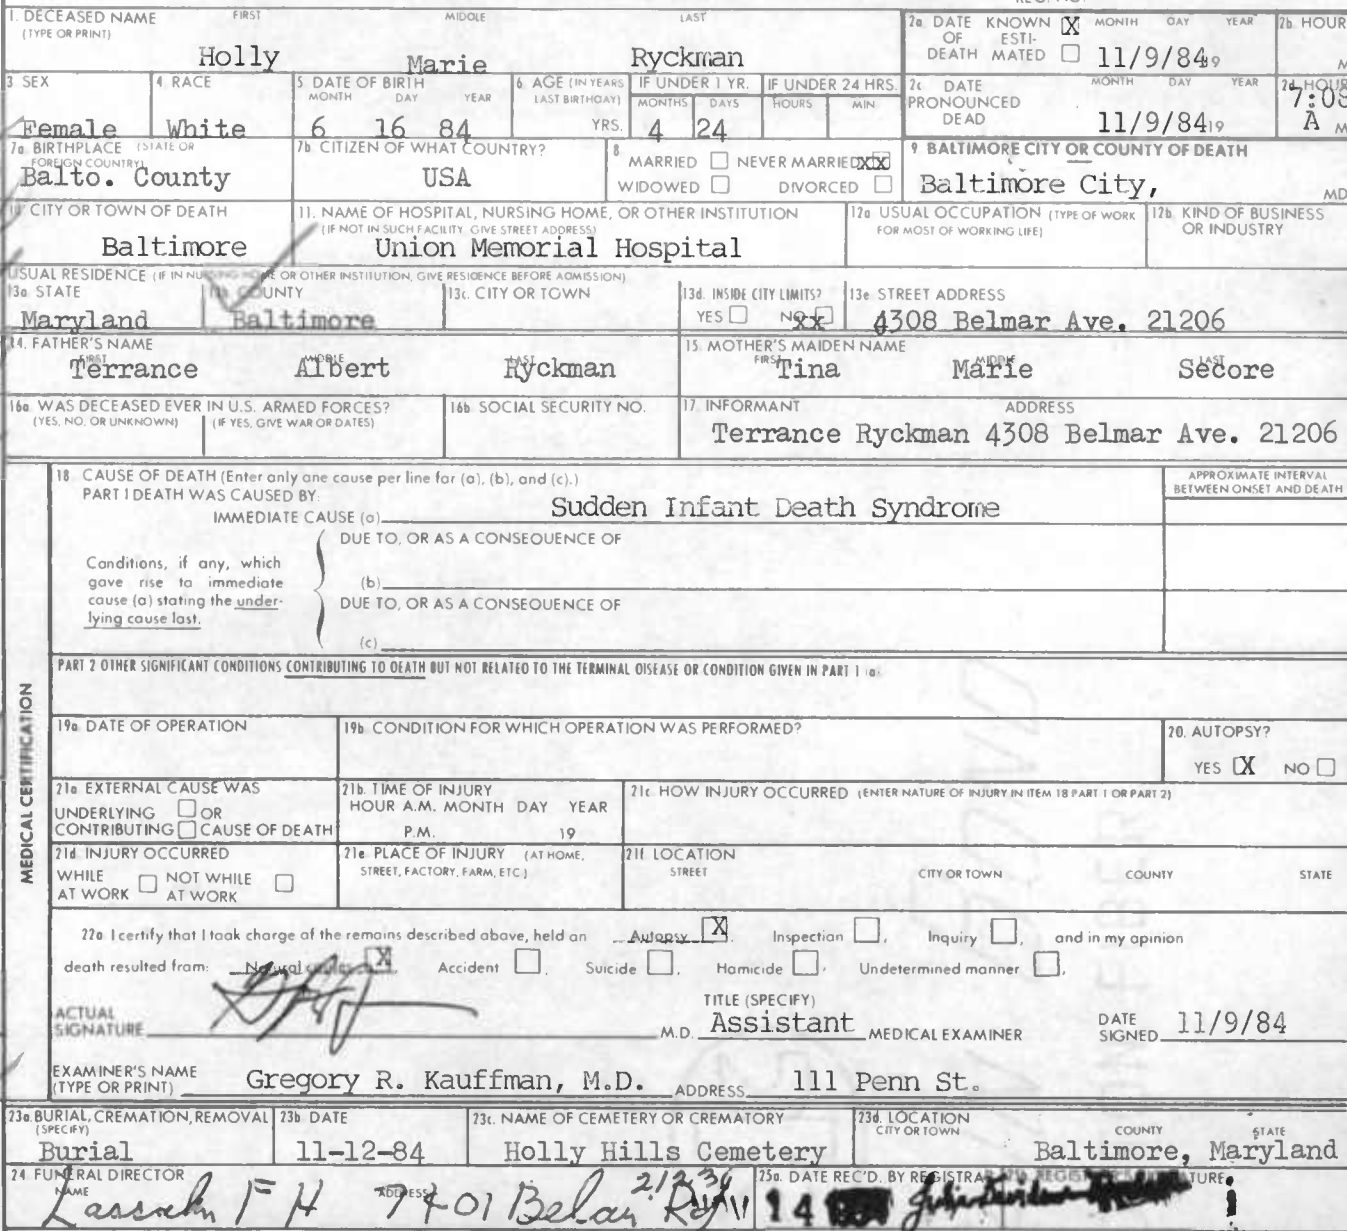 1. DECEASED NAME FIRST MIDDLE LAST
(TYPE OR PRINT)
Holly Marie Ryckman
2a. DATE KNOWN X MONTH DAY YEAR
OF ESTI-
DEATH MATED 11/9/84 19
2b. HOUR
M
3 SEX
Female
4. RACE
White
5 DATE OF BIRTH
MONTH DAY YEAR
6 16 84
6. AGE (IN YEARS
LAST BIRTHDAY)
YRS.
IF UNDER 1 YR.
MONTHS DAYS
4 24
IF UNDER 24 HRS.
HOURS MIN
2c DATE MONTH DAY YEAR
PRONOUNCED
DEAD 11/9/84 19
2d. HOUR
7:08
A M
7a BIRTHPLACE (STATE OR
FOREIGN COUNTRY)
Balto. County
7b CITIZEN OF WHAT COUNTRY?
USA
8
MARRIED NEVER MARRIED XX
WIDOWED DIVORCED
9 BALTIMORE CITY OR COUNTY OF DEATH
Baltimore City,
MD
10 CITY OR TOWN OF DEATH
Baltimore
11. NAME OF HOSPITAL, NURSING HOME, OR OTHER INSTITUTION
(IF NOT IN SUCH FACILITY, GIVE STREET ADDRESS)
Union Memorial Hospital
12a USUAL OCCUPATION (TYPE OF WORK
FOR MOST OF WORKING LIFE)
12b. KIND OF BUSINESS
OR INDUSTRY
USUAL RESIDENCE (IF IN NURSING HOME OR OTHER INSTITUTION, GIVE RESIDENCE BEFORE ADMISSION)
13a STATE
Maryland
13b COUNTY
Baltimore
13c. CITY OR TOWN
13d. INSIDE CITY LIMITS?
YES NO XX
13e STREET ADDRESS
4308 Belmar Ave. 21206
14. FATHER'S NAME
FIRST MIDDLE LAST
Terrance Albert Ryckman
15. MOTHER'S MAIDEN NAME
FIRST MIDDLE LAST
Tina Marie Secore
16a WAS DECEASED EVER IN U.S. ARMED FORCES?
(YES, NO, OR UNKNOWN) (IF YES, GIVE WAR OR DATES)
16b. SOCIAL SECURITY NO.
17. INFORMANT ADDRESS
Terrance Ryckman 4308 Belmar Ave. 21206
MEDICAL CERTIFICATION
18 CAUSE OF DEATH (Enter only one cause per line for (a), (b), and (c).)
PART I DEATH WAS CAUSED BY:
IMMEDIATE CAUSE (a) Sudden Infant Death Syndrome
APPROXIMATE INTERVAL
BETWEEN ONSET AND DEATH
DUE TO, OR AS A CONSEQUENCE OF
Conditions, if any, which
gave rise to immediate
cause (a) stating the under-
lying cause last.
(b)
DUE TO, OR AS A CONSEQUENCE OF
(c)
PART 2 OTHER SIGNIFICANT CONDITIONS CONTRIBUTING TO DEATH BUT NOT RELATED TO THE TERMINAL DISEASE OR CONDITION GIVEN IN PART 1 (a)
19a DATE OF OPERATION
19b CONDITION FOR WHICH OPERATION WAS PERFORMED?
20. AUTOPSY?
YES X NO
21a EXTERNAL CAUSE WAS
UNDERLYING OR
CONTRIBUTING CAUSE OF DEATH
21b. TIME OF INJURY
HOUR A.M. MONTH DAY YEAR
P.M. 19
21c HOW INJURY OCCURRED (ENTER NATURE OF INJURY IN ITEM 18 PART 1 OR PART 2)
21d INJURY OCCURRED
WHILE NOT WHILE
AT WORK AT WORK
21e PLACE OF INJURY (AT HOME,
STREET, FACTORY, FARM, ETC)
21f LOCATION
STREET CITY OR TOWN COUNTY STATE
22a I certify that I took charge of the remains described above, held an Autopsy X, Inspection, Inquiry, and in my opinion
death resulted from: Natural causes X, Accident, Suicide, Homicide, Undetermined manner,
ACTUAL
SIGNATURE M.D.
TITLE (SPECIFY)
Assistant MEDICAL EXAMINER
DATE
SIGNED 11/9/84
EXAMINER'S NAME
(TYPE OR PRINT) Gregory R. Kauffman, M.D. ADDRESS 111 Penn St.
23a. BURIAL, CREMATION, REMOVAL
(SPECIFY)
Burial
23b. DATE
11-12-84
23c. NAME OF CEMETERY OR CREMATORY
Holly Hills Cemetery
23d. LOCATION
CITY OR TOWN COUNTY STATE
Baltimore, Maryland
24 FUNERAL DIRECTOR
NAME ADDRESS
Lassahn F H 7401 Belair Rd 21236
25a. DATE REC'D. BY REGISTRAR
14